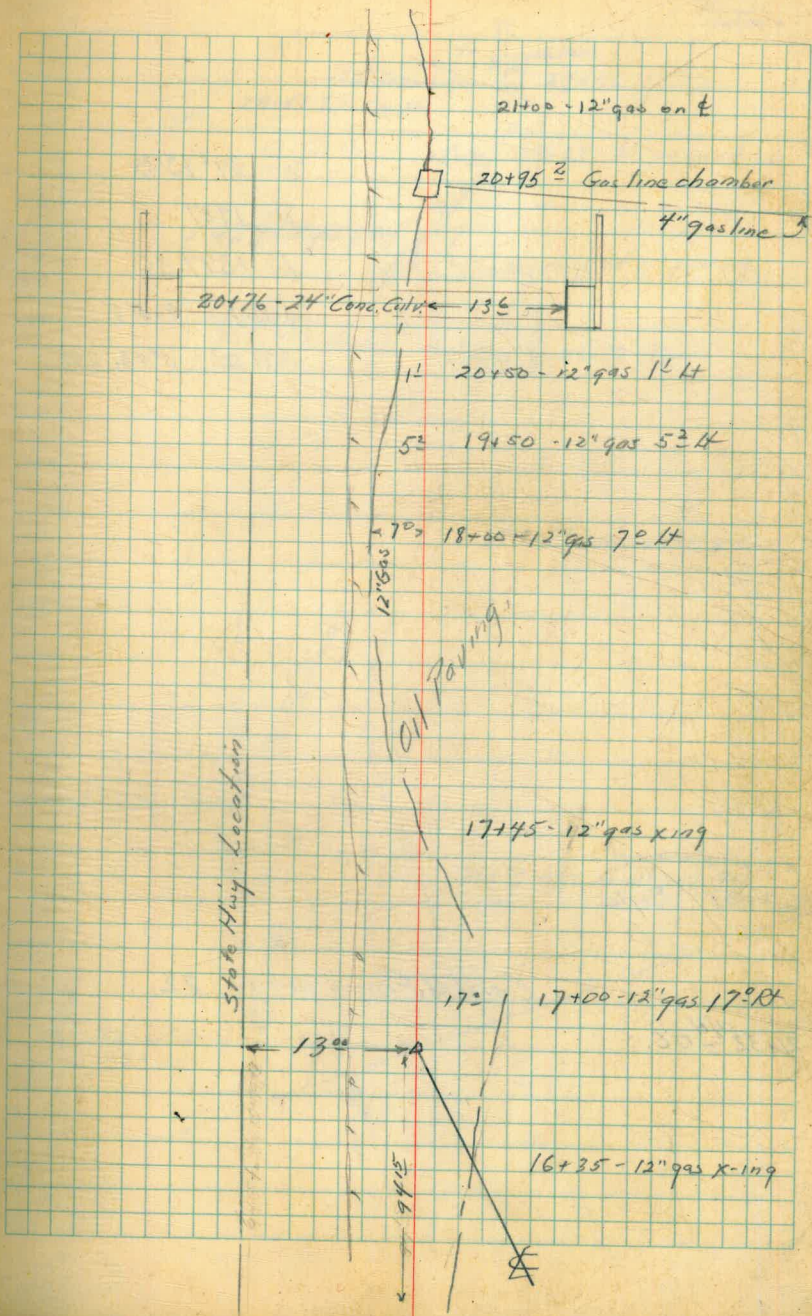 21+00 - 12" gas on ℄
20+95² Gas line chamber
4" gas line
20+76 - 24" Conc. Culv. 13⁶
1¹ 20+50 - 12" gas 1¹ Lt
5² 19+50 - 12" gas 5² Lt
7⁰ 18+00 - 12" gas 7⁰ Lt
12" Gas
Oil Paving
17+45 - 12" gas xing
State Hwy. Location
17⁰ 17+00 - 12" gas 17⁰ Rt
13⁰⁰
16+35 - 12" gas x-ing
94¹⁵
℄